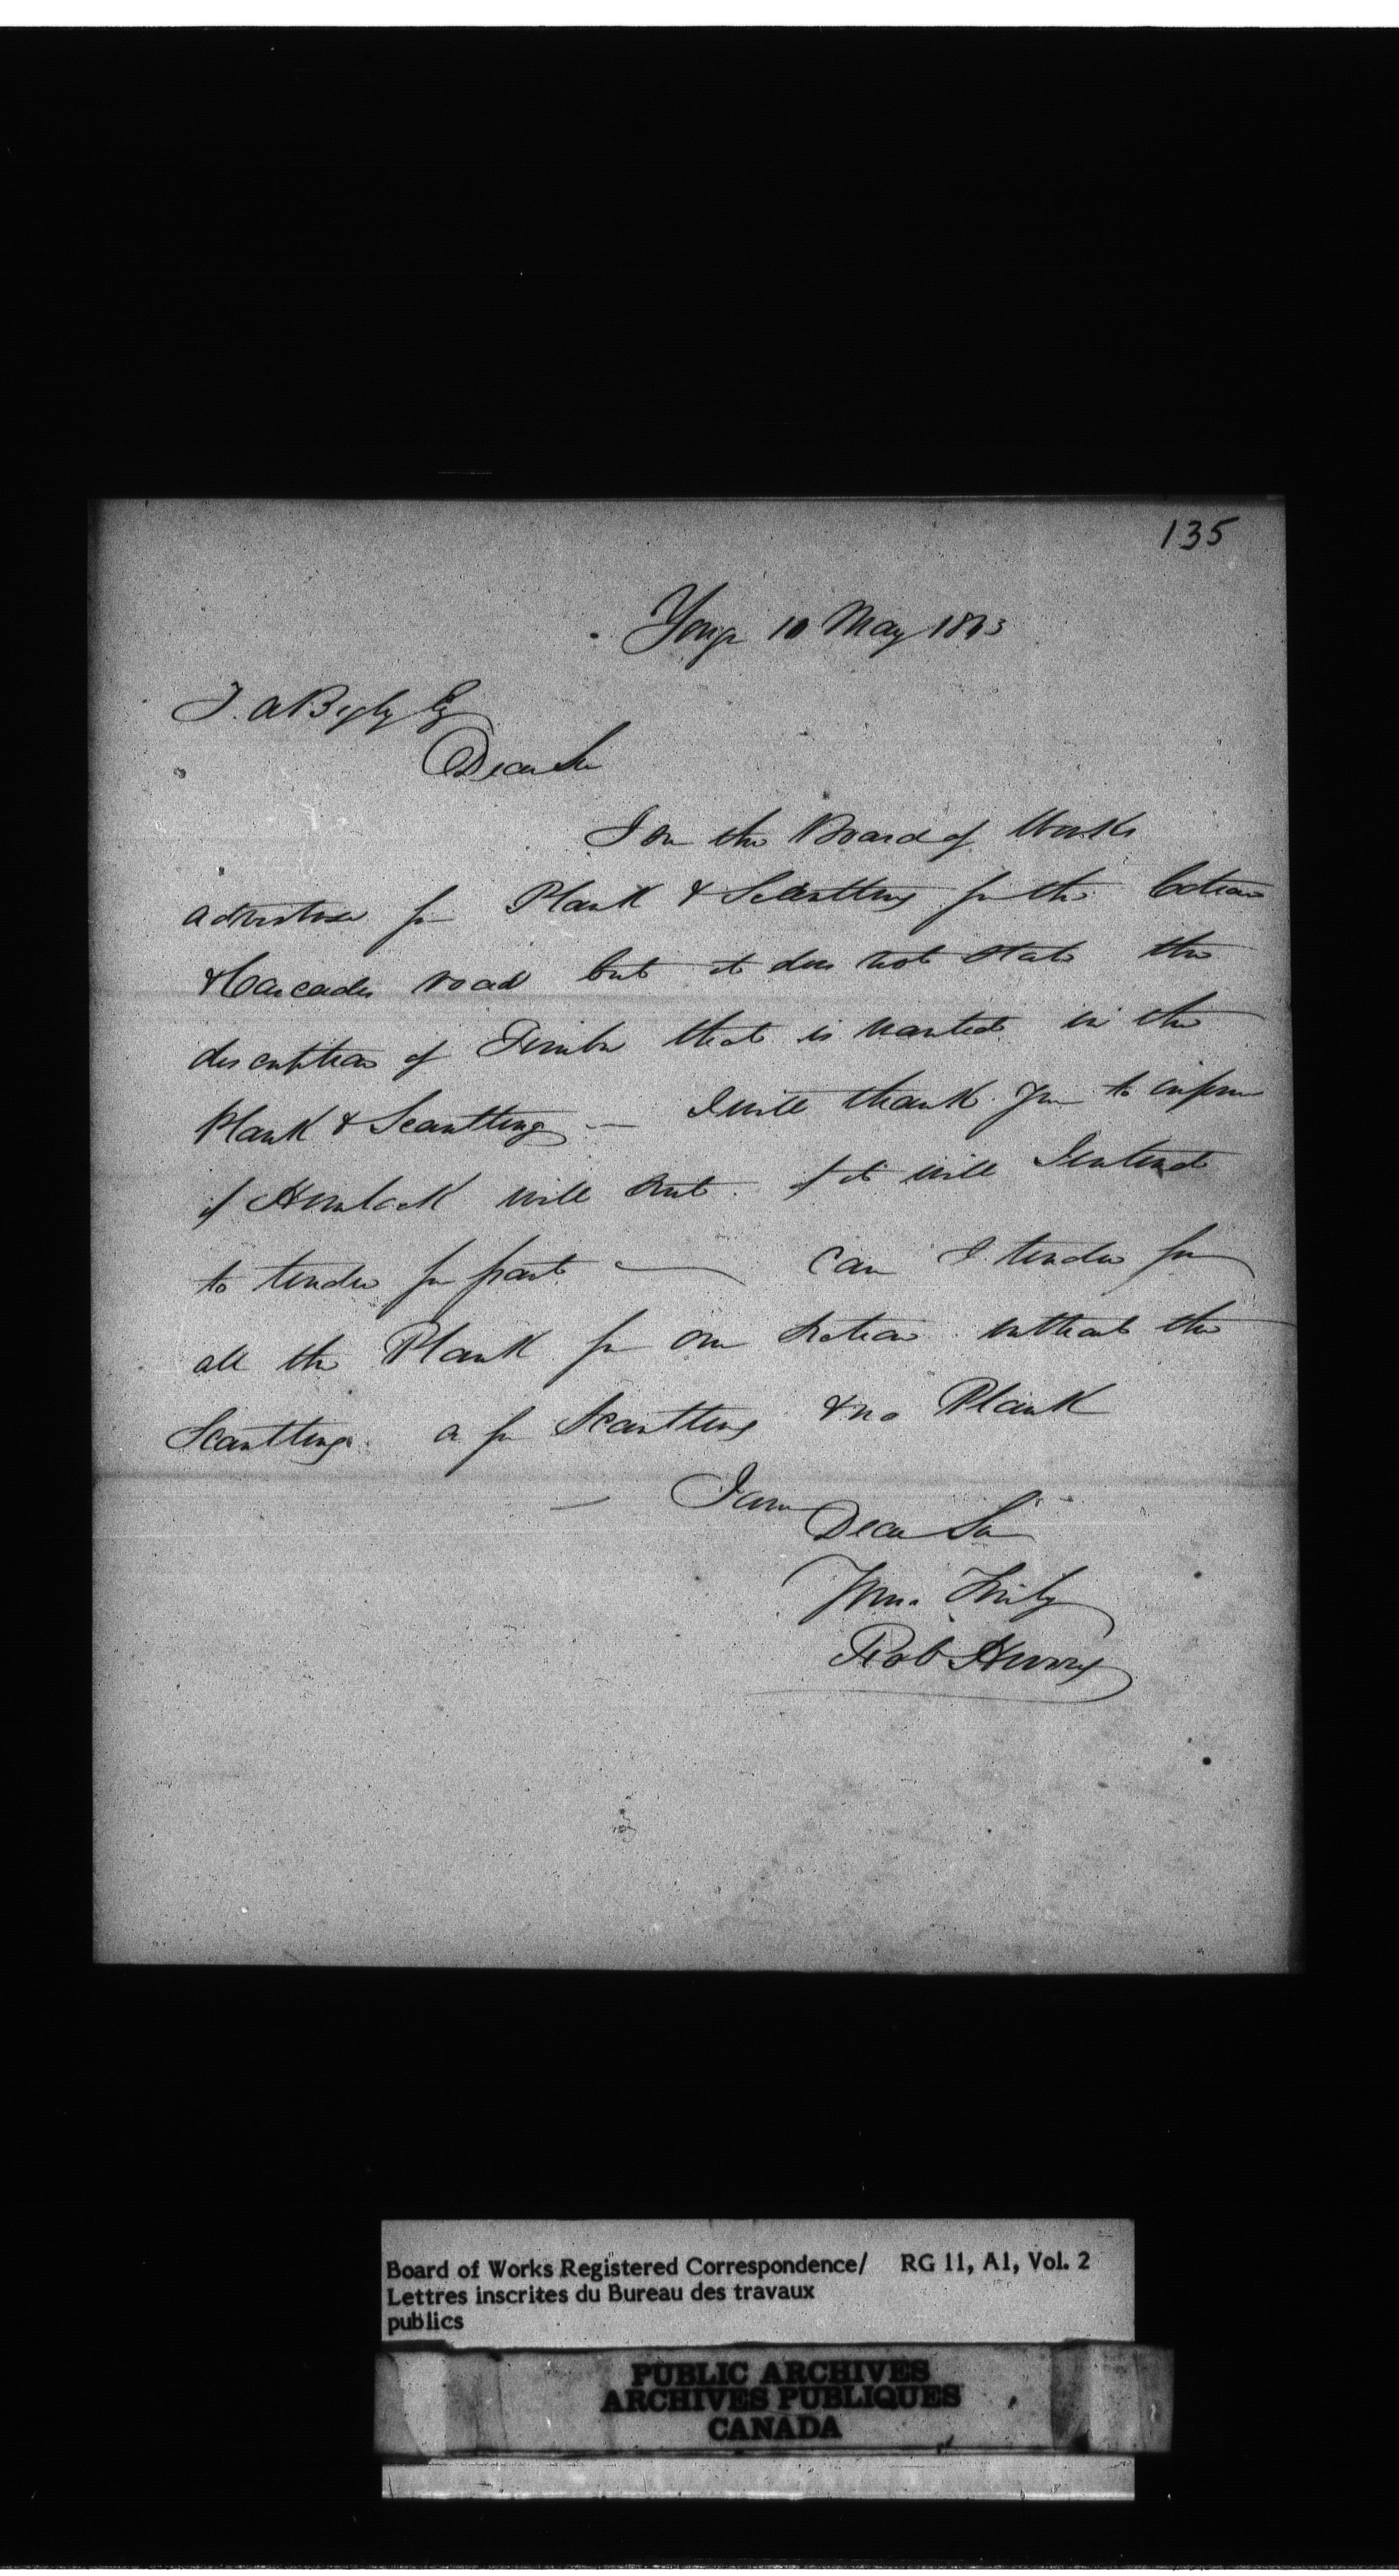 135
Yonge 10 May 1843
T. A Begly Esq
Dear Sir
I see the Board of Works
advertise for Plank & Scantling for the Coteau
& Cascades road but it does not state the
description of Timber that is wanted in the
Plank & Scantling — I will thank you to inform
if Hemlock will suit. if it will I intend
to tender for part — Can I tender for
all the Plank for one Section without the
Scantling. or for Scantling & no Plank
— I am
Dear Sir
Yours Truly
Rob Henry
Board of Works Registered Correspondence/ RG 11, A1, Vol. 2
Lettres inscrites du Bureau des travaux
publics
PUBLIC ARCHIVES
ARCHIVES PUBLIQUES
CANADA